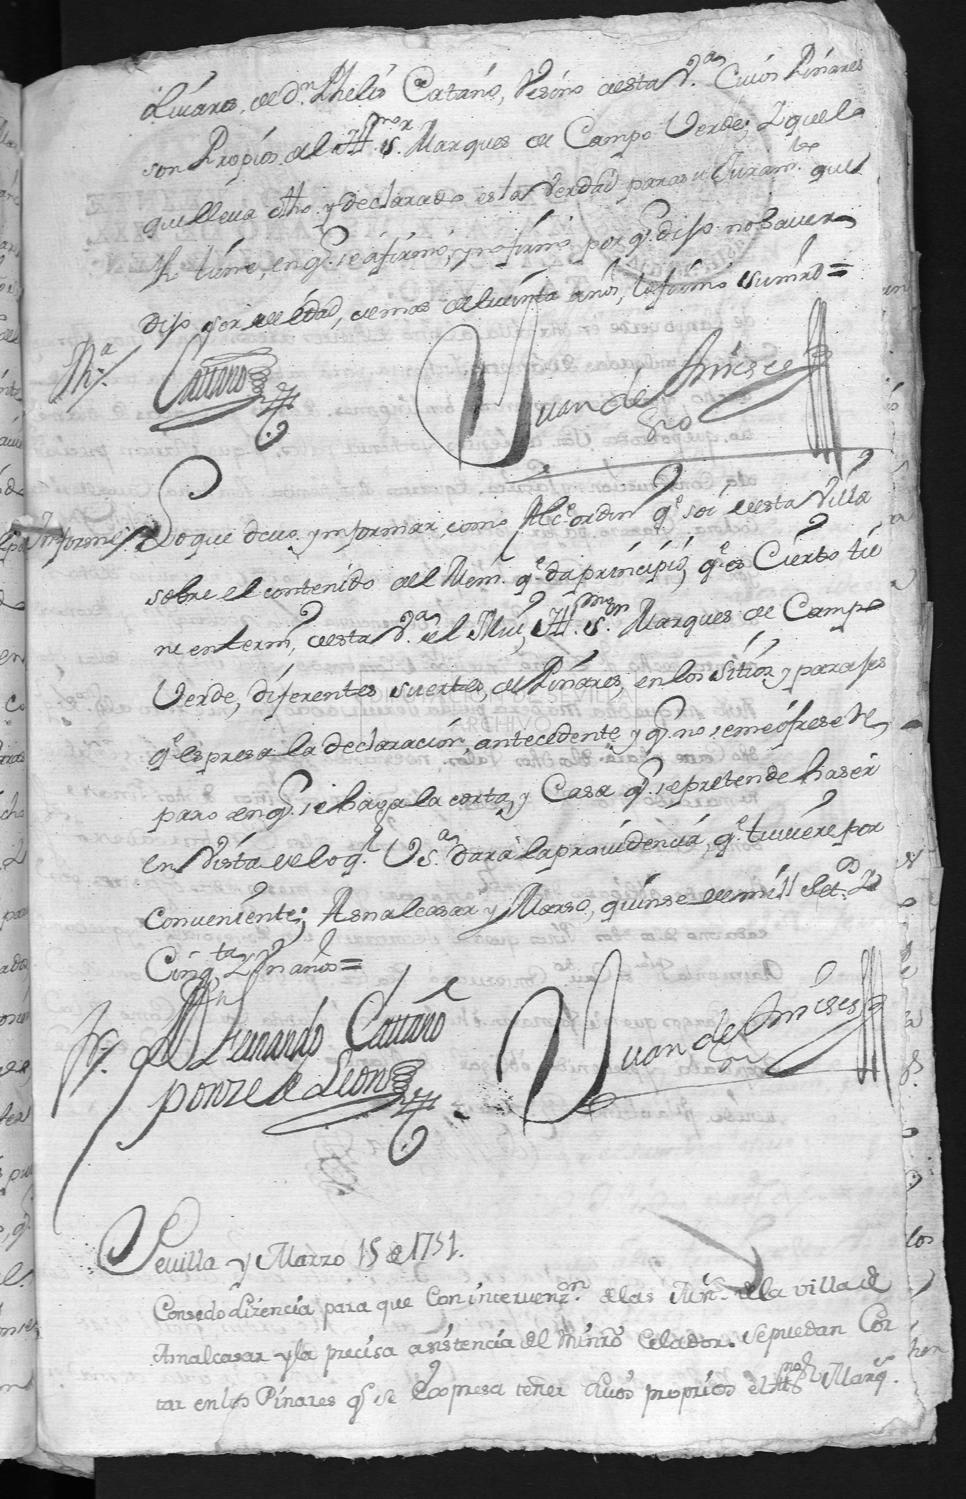 olivares, de Dn. Phelis Cataño, Vesino desta Va. Cuios Pinares
son Propios del Illmo. Sor. Marques de Campo Verde; y quello
que lleva dho. y declarado es la Verdad para su Juramto. que
fho. tiene, en q. se afirmó, y no firmó por q. dijo no haver
dijo ser de edad, de mas de treinta años, lo firmó su mrd =
Cattaño
Juan de
Informe / Lo que devo ynformar, como Alce. ordino. qe. soi desta Villa
sobre el contenido del Mem. qe. da principio, qe. es Cierto tie
ne en termo. desta Va. el Mui Illmo. Sn. Marques de Campo
Verde, diferentes suertes, de Pinares, en los Sitios y parajes
qe. espresa la declaración antecedente y q. no se me ofrese Re
paro en q. se haga la corta, y Casa q. se pretende haser
en Vista de lo q. Vsa. dara la providencia, qe. tuviere por
Conveniente; Asnalcasar y Marso, quinse de mill setd. y
Cinqta. y Un años =
Dn. Fernando Cattaño
ponze de Leon
Juan de
Sevilla y Marzo 15 de 1751.
Consedo Lizencia para que Con intervenzn. de las Justs. de la villa de
Asnalcasar y la precisa asistencia del Minro Celador. se puedan Cor
tar en los Pinares q. se Expresa tener Suos proprios el Illmo. Sr. Marqs.